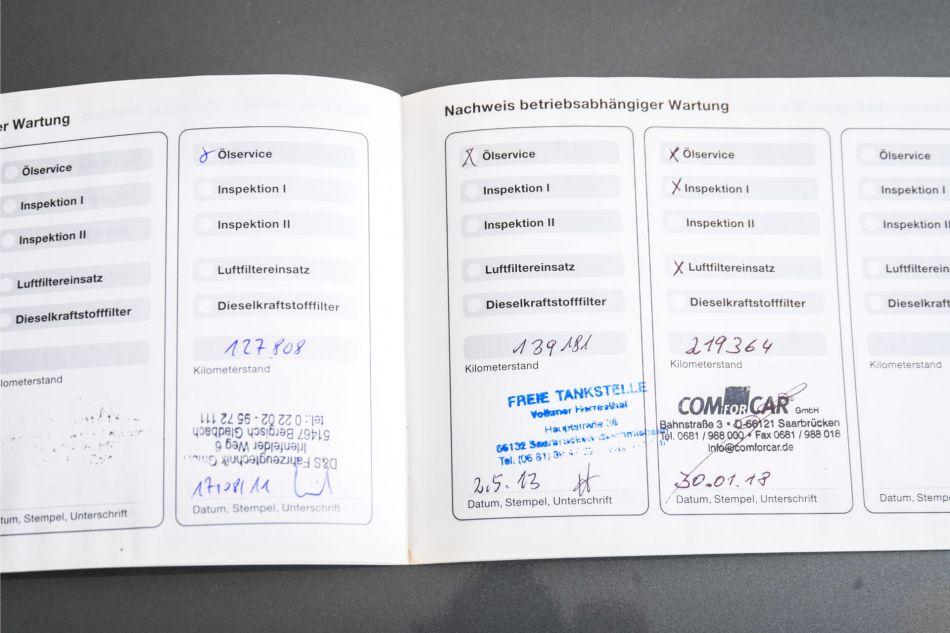 er Wartung
Ölservice
Inspektion I
Inspektion II
Luftfiltereinsatz
Dieselkraftstofffilter
lometerstand
tum, Stempel, Unterschrift
Ölservice
Inspektion I
Inspektion II
Luftfiltereinsatz
Dieselkraftstofffilter
127.808
Kilometerstand
tel.: 0 22 02 - 95 72 111
51467 Bergisch Gladbach
Irlenfelder Weg 6
D&S Fahrzeugtechnik
17/08/11
Datum, Stempel, Unterschrift
Nachweis betriebsabhängiger Wartung
X Ölservice
Inspektion I
Inspektion II
Luftfiltereinsatz
Dieselkraftstofffilter
139181
Kilometerstand
FREIE TANKSTELLE
Volkmer
Hauptstraße 36
66132 Saarbrücken
Tel. (06 81)
2.5.13
Datum, Stempel, Unterschrift
X Ölservice
X Inspektion I
Inspektion II
X Luftfiltereinsatz
Dieselkraftstofffilter
219364
Kilometerstand
COMFORCAR GmbH
Bahnstraße 3 • D-66121 Saarbrücken
Tel. 0681 / 988 000 • Fax 0681 / 988 018
info@comforcar.de
30.01.18
Datum, Stempel, Unterschrift
Ölservice
Inspektion I
Inspektion II
Luftfilterein
Dieselkraftst
Kilometerstand
Datum, Stempel, U